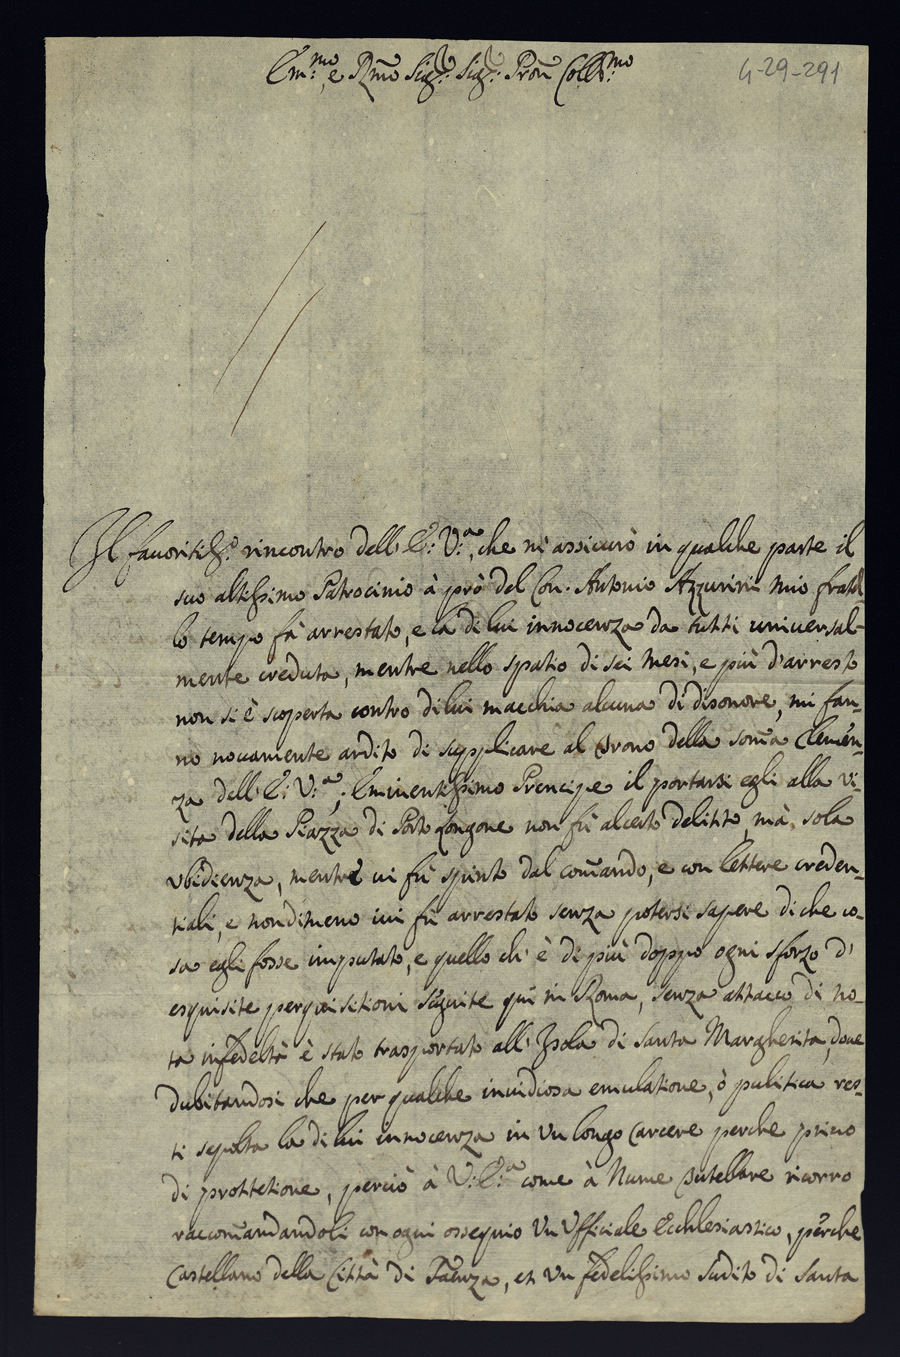 Em:mo, e Rmo Sig:r Sig:r Pron Coll:mo
4-29-291
Il fauoritiss:o rincontro dell' E: V:a, che m'assicurò in qualche parte il
suo altissimo Patrocinio à prò del Con. Antonio Azzurini mio fratel-
lo tempo fà arrestato, e la di lui innocenza da tutti uniuersal-
mente creduta, mentre nello spatio di sei mesi, e più d'arresto
non si è scoperta contro di lui macchia alcuna di disonore, mi fan-
no nouamente ardito di supplicare al Trono della soma Clemen-
za dell' E: V:a; Eminentissimo Prencipe il portarsi egli alla vi-
sita della Piazza di Porto Longone non fù al certo delitto, mà sola
vbidienza, mentre ui fù spinto dal comando, e con lettere creden-
tiali, e nondimeno iui fù arrestato senza potersi sapere di che co-
sa egli fosse imputato, e quello ch' è di più doppo ogni sforzo d'
esquisite perquisitioni seguite quì in Roma, senza attacco di no-
ta infedeltà è stato trasportato all' Isola di Santa Margherita, doue
dubitandosi che per qualche inuidiosa emulatione, ò pulitica res-
ti sepolta la di lui innocenza in un longo Carcere perche priuo
di protettione, perciò à V: E:a come à Nume Tutellare ricorro
raccomandandoli con ogni ossequio un Vfficiale Ecchlesiastico, perche
Castellano della Città di Faenza, et un fedelissimo Sudito di Santa